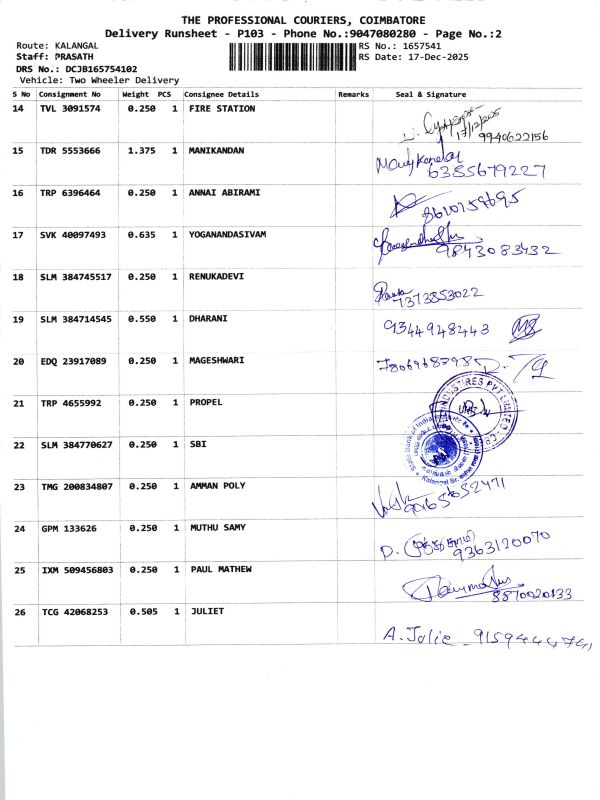 THE PROFESSIONAL COURIERS, COIMBATORE
Delivery Runsheet - P103 - Phone No.:9047080280 - Page No.:2
Route: KALANGAL RS No.: 1657541
Staff: PRASATH RS Date: 17-Dec-2025
DRS No.: DCJB165754102
Vehicle: Two Wheeler Delivery
S No Consignment No Weight PCS Consignee Details Remarks Seal & Signature
14 TVL 3091574 0.250 1 FIRE STATION
17/12/2025
9940622156
15 TDR 5553666 1.375 1 MANIKANDAN
Manikandan
6385679227
16 TRP 6396464 0.250 1 ANNAI ABIRAMI
8610759695
17 SVK 40097493 0.635 1 YOGANANDASIVAM
9843083432
18 SLM 384745517 0.250 1 RENUKADEVI
7373853022
19 SLM 384714545 0.550 1 DHARANI
9344948443
20 EDQ 23917089 0.250 1 MAGESHWARI
7806968398
21 TRP 4655992 0.250 1 PROPEL
INDUSTRIES PVT LIMITED
22 SLM 384770627 0.250 1 SBI
State Bank of India
Kalangal Br.
23 TMG 200834807 0.250 1 AMMAN POLY
24 GPM 133626 0.250 1 MUTHU SAMY
9363120070
25 IXM 509456803 0.250 1 PAUL MATHEW
8870020133
26 TCG 42068253 0.505 1 JULIET
A. Jolie - 9159444741